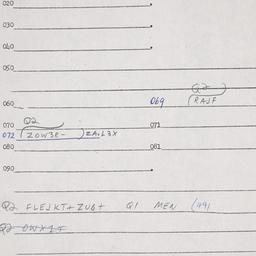 020
030
040
050
Q2
060 069 RAJF
Q2
070 071
072 ZOW3E- ZAL3X
080 081
090
Q2 FLEJKT+ZU6+ Q1 MEN (49)